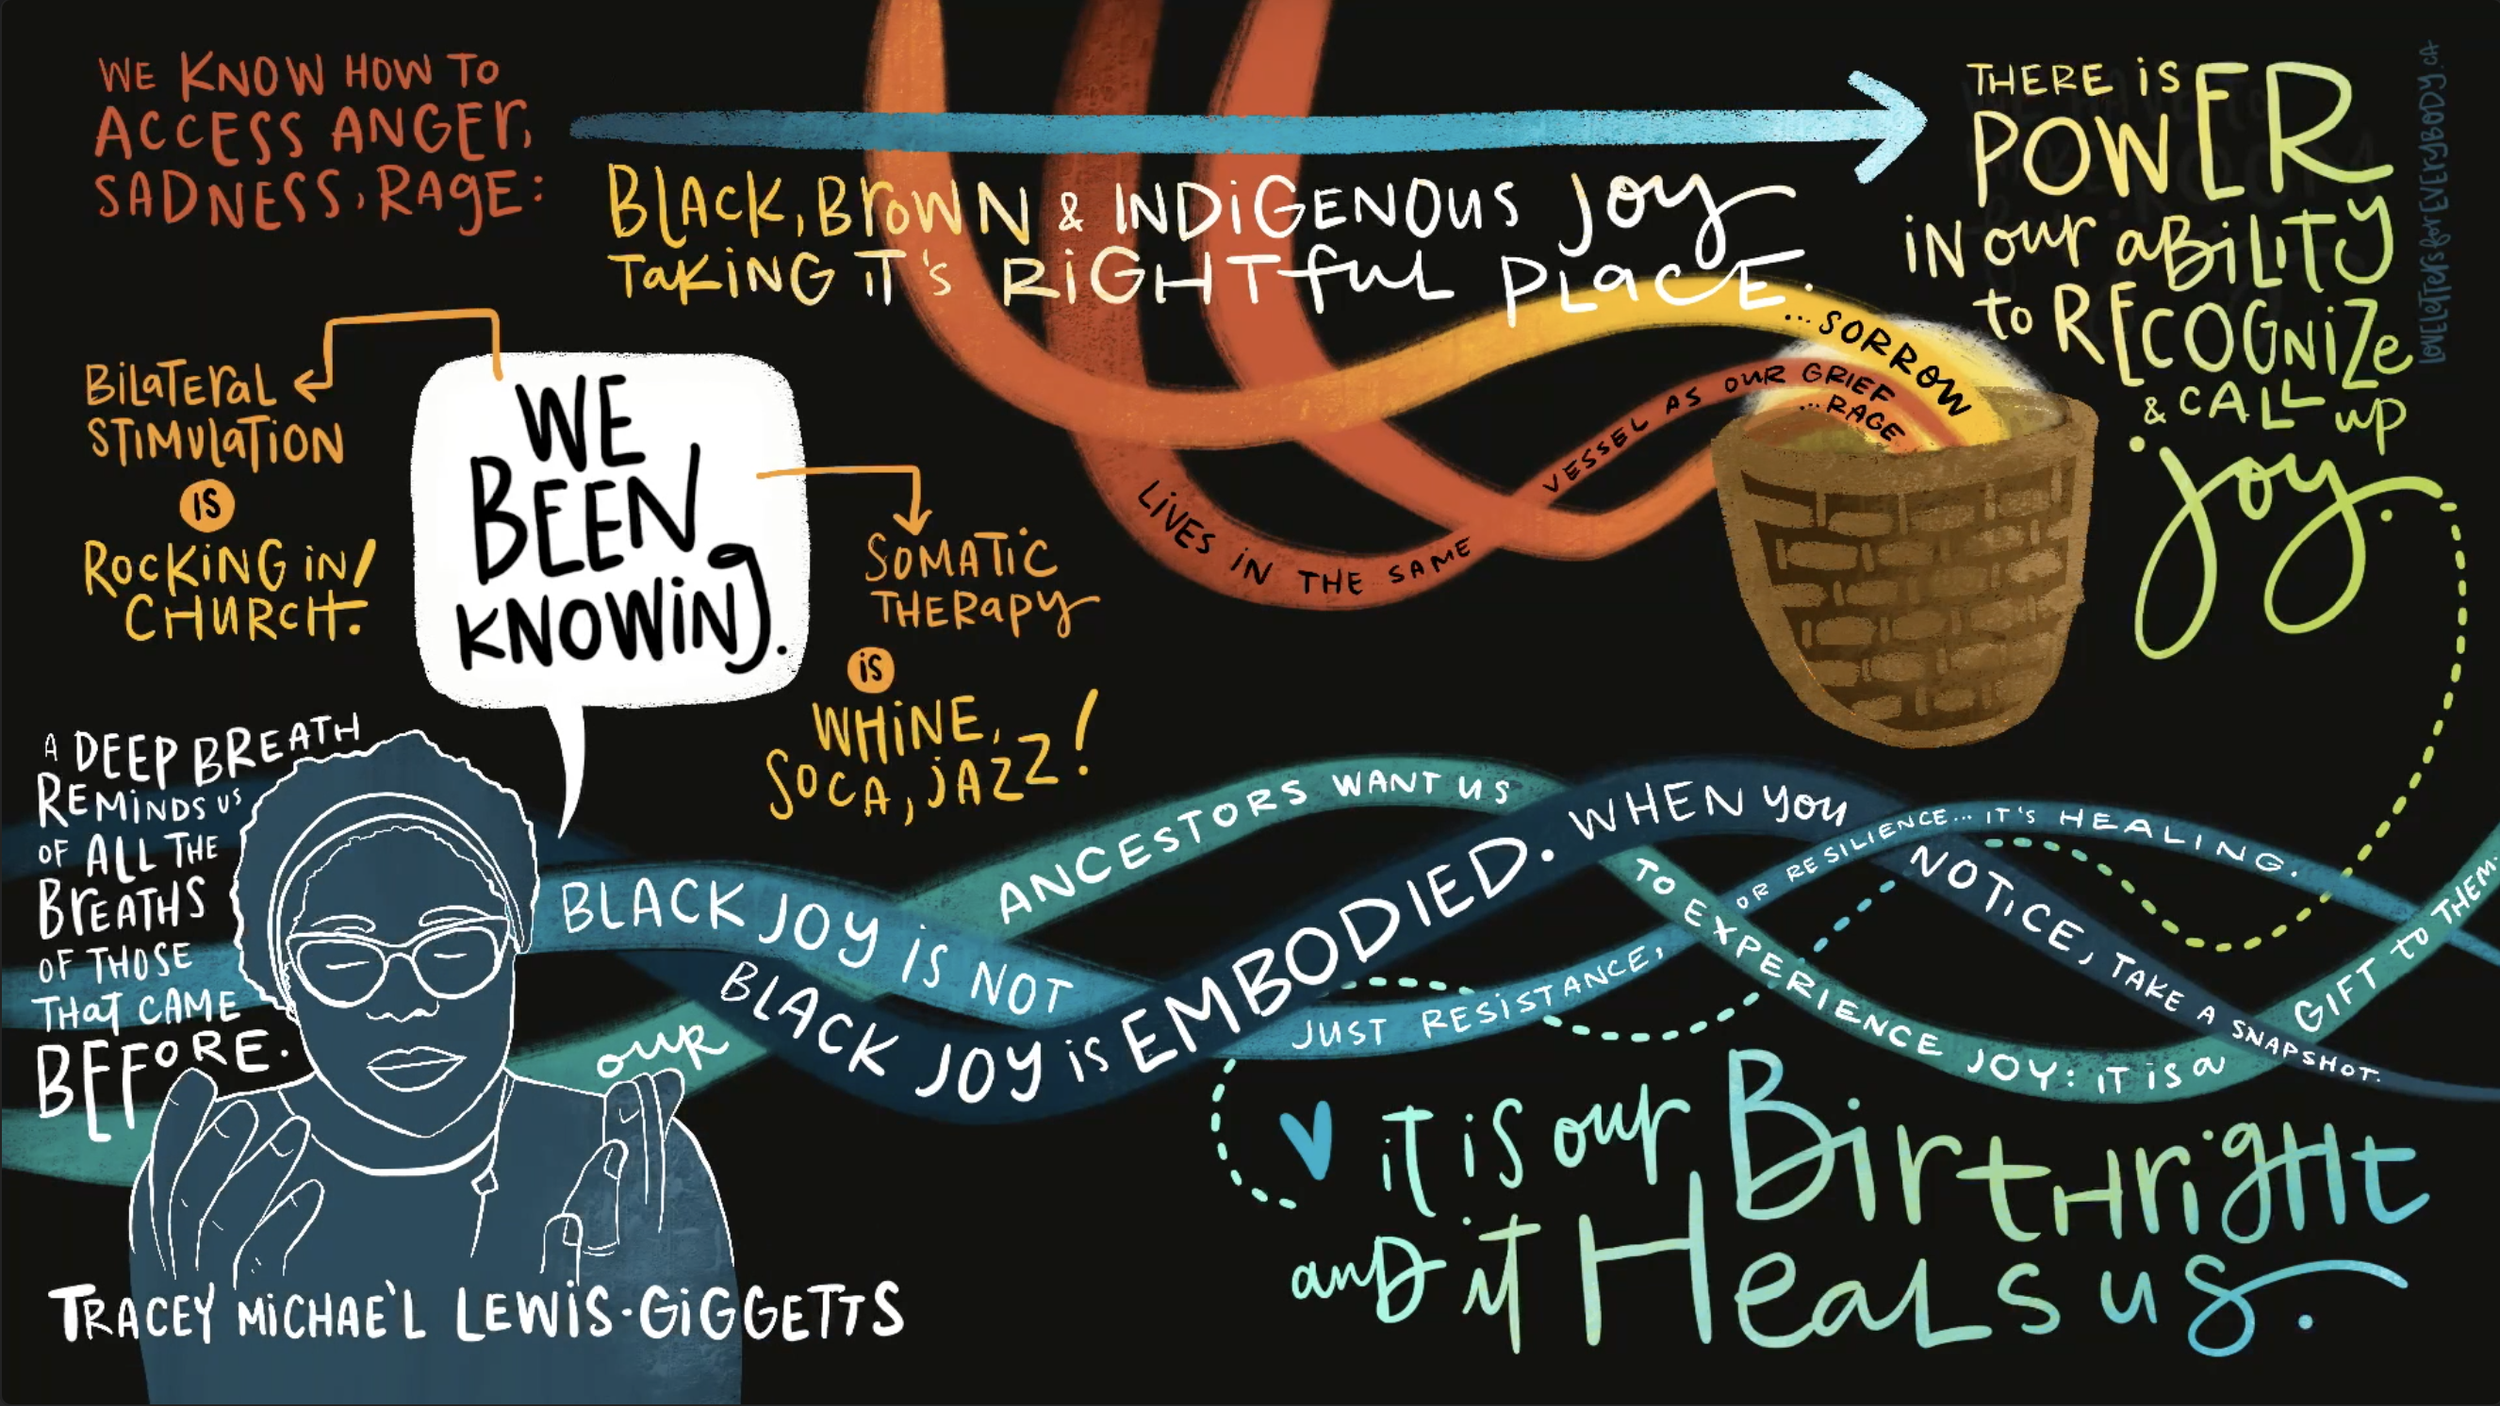 WE KNOW HOW TO
ACCESS ANGER,
SADNESS, RAGE:
BLACK, BROWN & INDIGENOUS JOY
TAKING IT'S RIGHTFUL PLACE.
THERE IS
POWER
IN OUR ABILITY
TO RECOGNIZE
& CALL UP
JOY.
LOVELETTERSFOREVERYBODY.CA
BILATERAL
STIMULATION
IS
ROCKING IN
CHURCH!
WE
BEEN
KNOWING.
SOMATIC
THERAPY
IS
WHINE,
SOCA, JAZZ!
LIVES IN THE SAME VESSEL AS OUR GRIEF
...RAGE
...SORROW
A DEEP BREATH
REMINDS US
OF ALL THE
BREATHS
OF THOSE
THAT CAME
BEFORE.
BLACK JOY IS NOT JUST RESISTANCE, OR RESILIENCE... IT'S HEALING.
BLACK JOY IS EMBODIED. WHEN YOU NOTICE, TAKE A SNAPSHOT.
OUR ANCESTORS WANT US TO EXPERIENCE JOY: IT IS A GIFT TO THEM.
IT IS OUR BIRTHRIGHT
AND IT HEALS US.
TRACEY MICHAE'L LEWIS-GIGGETTS